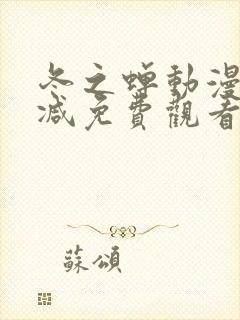 冬之蝉動漫
减免費觀看
蘇頌